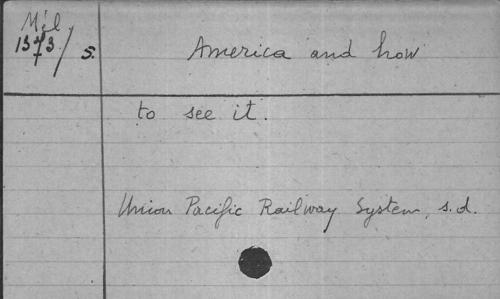 Mél.
1373/5.
America and how
to see it.
Union Pacific Railway System, s.d.